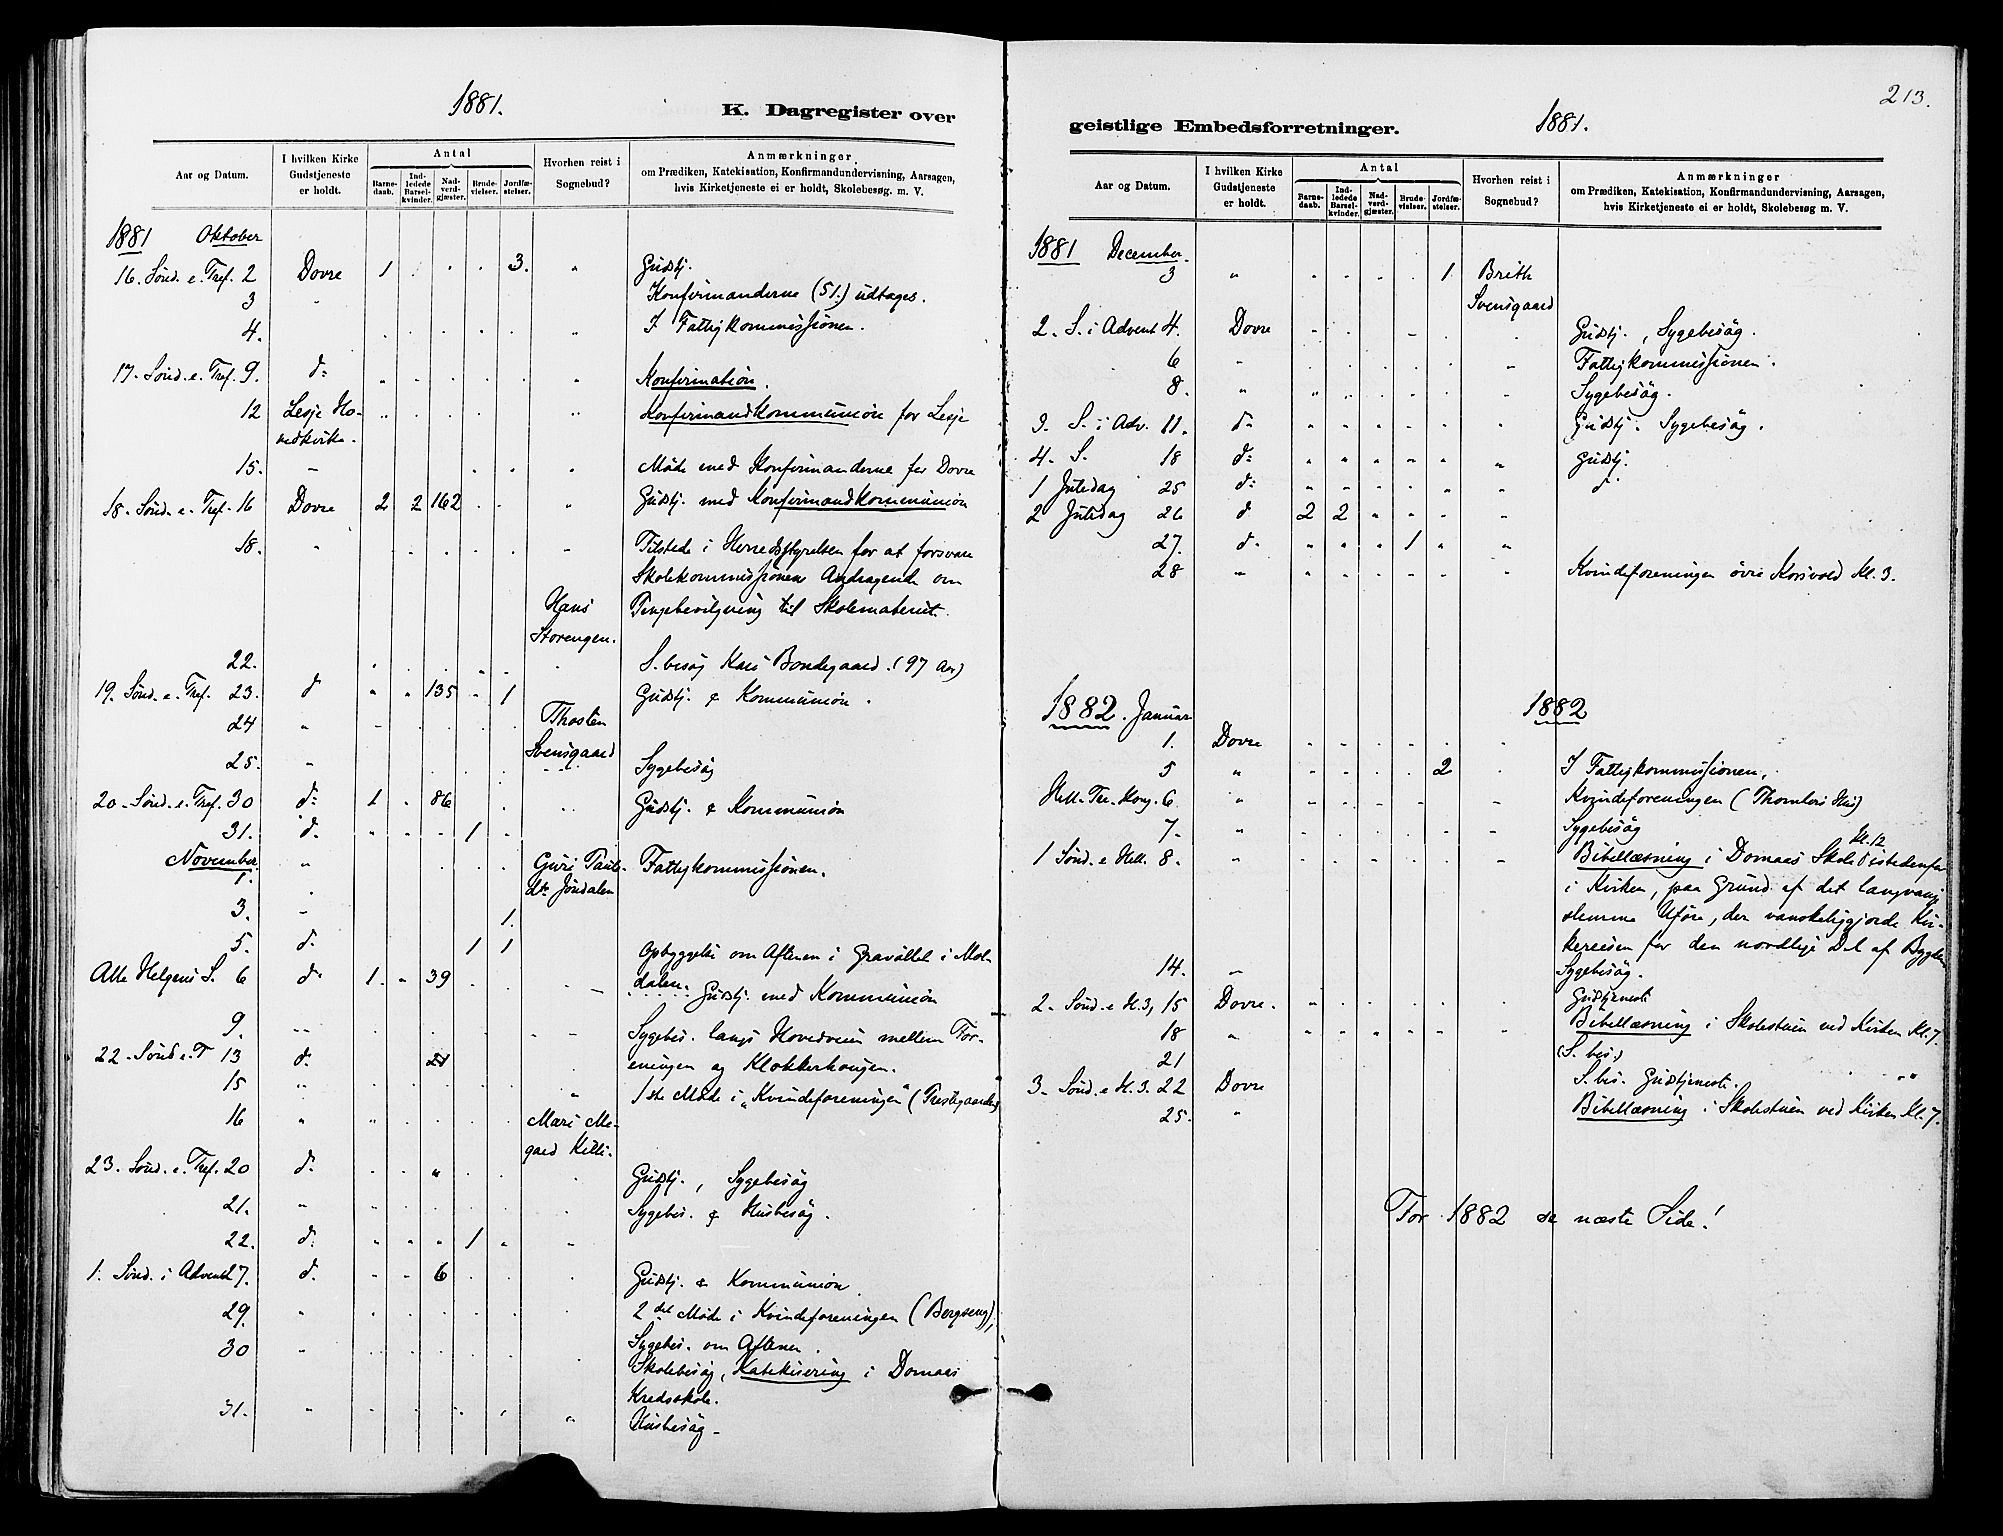 1881.
K. Dagregister over
Aar og Datum.
I hvilken Kirke Gudstjeneste er holdt.
Antal
Barnedaab.
Indledede Barselkvinder.
Nadverdgjæster.
Brudevielser.
Jordfæstelser.
Hvorhen reist i Sognebud?
Anmærkninger
om Prædiken, Katekisation, Konfirmandundervisning, Aarsagen,
hvis Kirketjeneste ei er holdt, Skolebesøg. m. V.
1881 Oktober
16. Sönd. e. Tref. 2 Dovre 1 . . . 3. " Gudstj.
3 " Konfirmanderne (51.) udtages.
4. I Fattigkommissionen.
17. Sönd. e. Tref. 9. do Konfirmation.
12 Lesje Ho- Konfirmandkommunion for Lesje
vedkirke.
15. " Möde med Konfirmanderne for Dovre
18. Sönd. e. Tref. 16 Dovre 2 2 162 Gudstj. med Konfirmandkommunion
18. " Tilstede i Herredsstyrelsen for at forsvare
Skolekommissionens Andragende om
Hans Pengebevilgning til Skolemateriel.
Storengen.
22. S. besög Kari Bondegaard. (97 Aar)
19. Sönd. e. Tref. 23. do " " 135 " 1 Gudstj. & Kommunion.
24 " Thosten
Svensgaard
25. " Sygebesög
20. Sönd. e. Tref. 30 do 1 . 86 Gudstj. & Kommunion
31. do " " " 1 "
November " Guri Pauls- Fattigkommissionen.
1. dtr Jöndalen
3. " 1.
5. do 1 1 Opbyggelse om Aftenen i Gravöllet i
Alle Helgens S. 6 do 1. " 39 dalen. Gudstj. med Kommunion
9. " Sygebes. langs Hovedveien mellem
22. Sönd. e. T 13 do 21 og Klokkerhaugen.
15 " 1ste Möde i „Kvindeforeningen" (Prestegaarden)
16 " Mari
gaard Killi.
23. Sönd. e. Tref. 20 do Gudstj., Sygebesög
21. " Sygebes. & Husbesög.
22. do " " " 1 "
1. Sönd. i Advent 27. do " " 6 Gudstj. & Kommunion
29. " 2det Möde i Kvindeforeningen (Bergseng),
30 " Sygebes. om Aftenen.
Skolebesög, Katekisering i Domaas
Kredsskole.
31. " Husbesög.
213.
geistlige Embedsforretninger.
1881.
Aar og Datum.
I hvilken Kirke Gudstjeneste er holdt.
Antal
Barnedaab.
Indledede Barselkvinder.
Nadverdgjæster.
Brudevielser.
Jordfæstelser.
Hvorhen reist i Sognebud?
Anmærkninger
om Prædiken, Katekisation, Konfirmandundervisning, Aarsagen,
hvis Kirketjeneste ei er holdt, Skolebesøg m. V.
1881 December.
3 " 1 Brith
Svensgaard
2. S. i Advent 4. Dovre Gudstj., Sygebesög.
6 " Fattigkommissionen.
8. " Sygebesög.
3. S. i Adv. 11. do Gudstj. Sygebesög.
4. S. 18 do Gudstj.
1 Juledag 25 do do
2 Juledag 26 do 2 2
27. do " " " 1 " "
28 " Kvindeforeningen övre Korsvold Kl. 3.
1882. Januar 1882
1. Dovre
5 " 2 I Fattigkommissionen.
Hell. Tre. Kong. 6 " Kvindeforeningen (Thomlers Hus)
7. " Sygebesög
1 Sönd. e Hell. 8. " Bibellæsning i Domaas Skole Kl. 12 istedenfor
i Kirken, paa Grund af det langvarige
slemme Uföre, der vanskeliggjorde Kir-
kereisen for den nordlige Del af Bygden
14. " Sygebesög.
2. Sönd. e H. 3, 15 Dovre. Gudstjeneste
18 " Bibellæsning i Skolestuen ved Kirken Kl. 7.
21 (S. bes.)
3. Sönd. e H. 3. 22 Dovre S. bes. Gudstjeneste.
25. " Bibellæsning i Skolestuen ved Kirken Kl. 7.
For 1882 se næste Side!